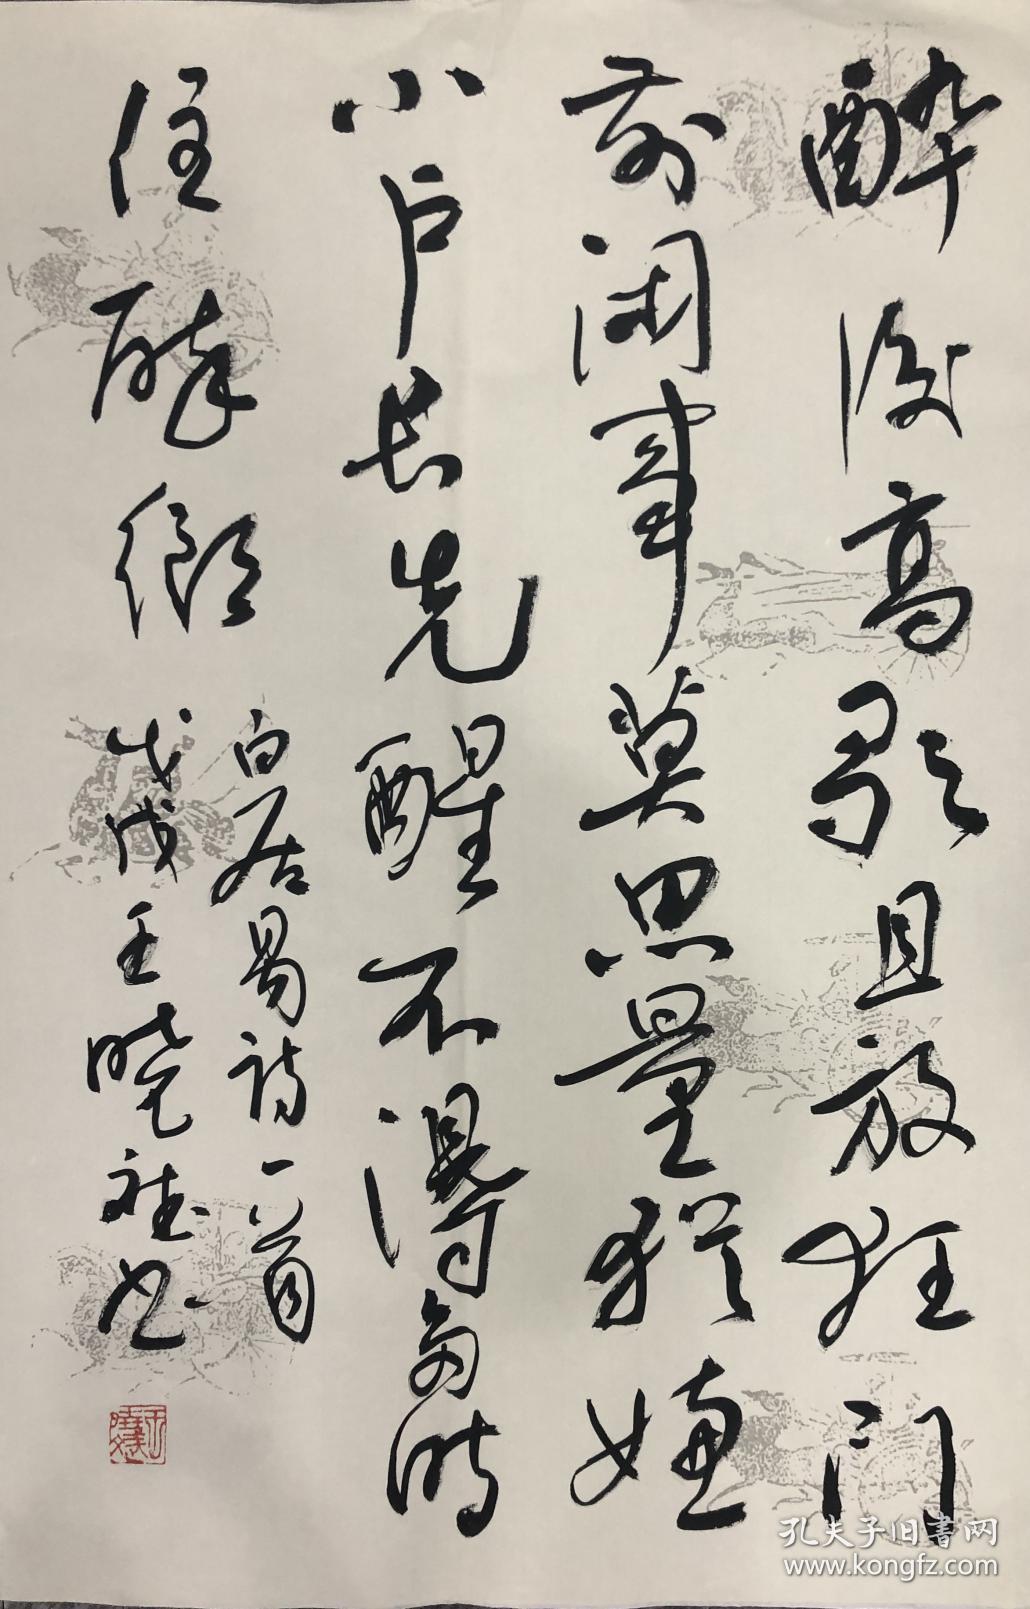 酔後高歌且放狂门
前闲事莫思量猶嫌
小户长先醒不得多时
住醉鄉
白居易诗一首
戊戌王晓书
孔夫子旧书网
www.kongfz.com